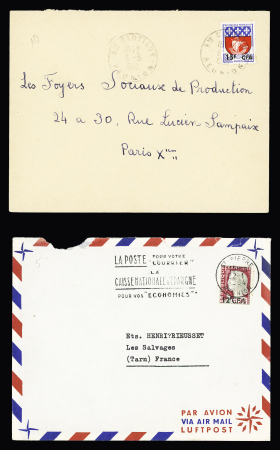 15F CFA
Les Foyers Sociaux de Production
24 a 30, Rue Lucien Sampaix
Paris Xème
LA POSTE POUR VOTRE "COURRIER"
LA
CAISSE NATIONALE D'EPARGNE
POUR VOS "ECONOMIES"
12F CFA
Ets. HENRI RIEUSSET
Les Salvages
(Tarn) France
PAR AVION
VIA AIR MAIL
LUFTPOST